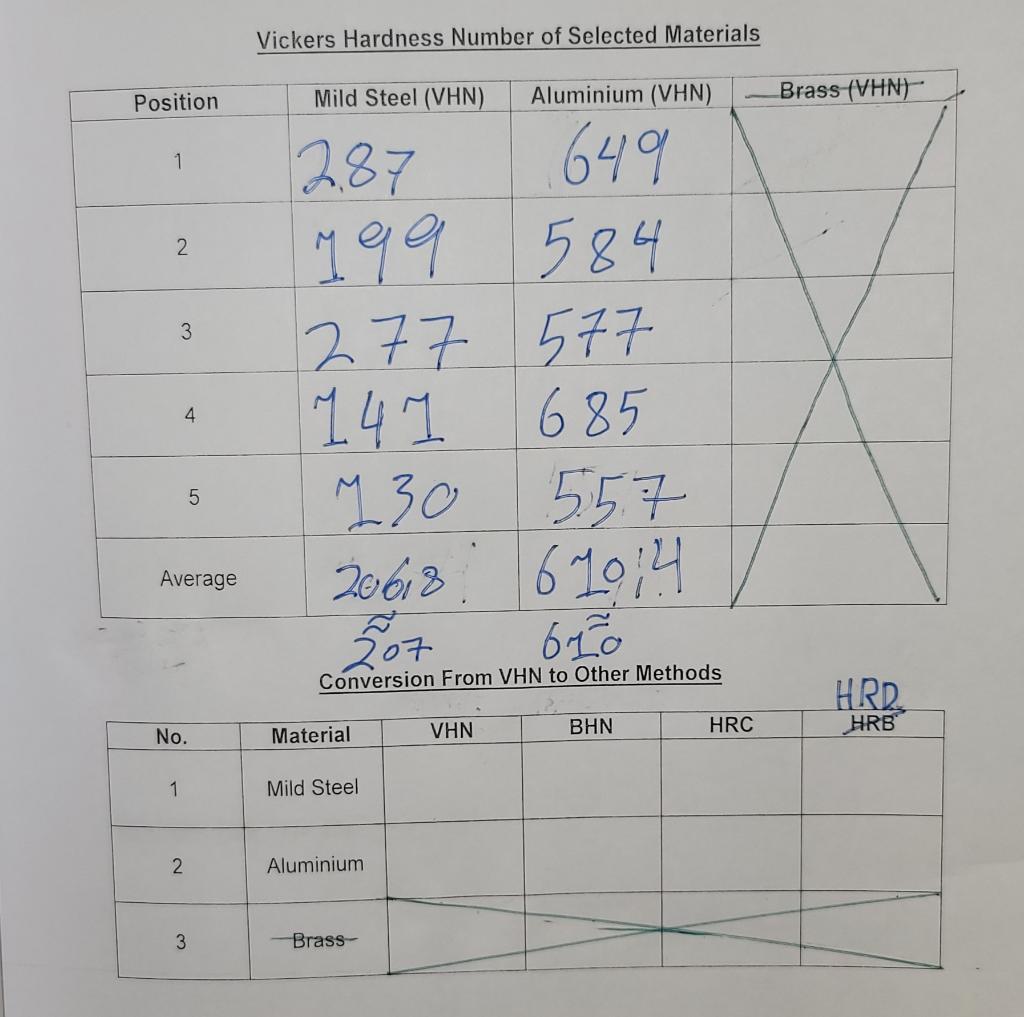 Vickers Hardness Number of Selected Materials
Position Mild Steel (VHN) Aluminium (VHN) Brass (VHN)
1 287 649
2 199 584
3 277 577
4 141 685
5 130 557
Average 206,8 610,4
≈207 ≈610
Conversion From VHN to Other Methods
HRD
No. Material VHN BHN HRC HRB
1 Mild Steel
2 Aluminium
3 Brass